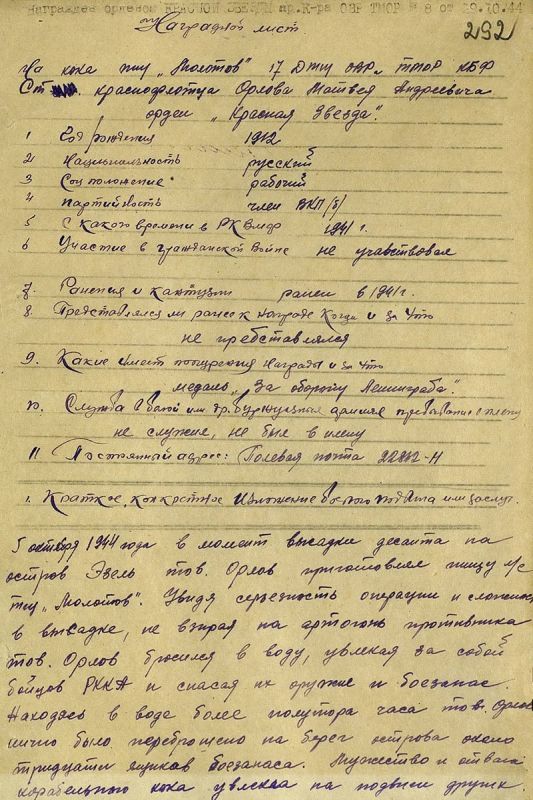 Награжден орденом КРАСНОЙ ЗВЕЗДЫ пр. К-ра ОВР ТМОР № 8 от 19.10.44
292
Наградной лист.
На кока тщ „Молотов" 17 Дтщ ОВР ТМОР КБФ
Ст. краснофлотца Орлова Матвея Андреевича
орден „Красная Звезда".
1 Год рождения 1912
2 Национальность русский
3 Соц положение рабочий
4 партийность член ВКП(б)
5 С какого времени в РКВмф 1941 г.
6 Участие в гражданской войне не учавствовал
7. Ранения и кантузии ранен в 1941 г.
8. Представлялся ли ранее к награде Когда и за что
не представлялся
9. Какие имеет поощрения Награды и за что
медаль „За оборону Ленинграда".
10. Служба в белой или др. буржуазная армиях пребывание в плену
не служил, не был в плену
11 Постоянный адрес: Полевая почта 22862-Н
1. Краткое, конкретное изложение боевого подвига или заслуг.
5 октября 1944 года в момент высадки десанта на
остров Эзель тов. Орлов приготовлял пищу л/с
тщ „Молотов". Увидя серьезность операции и сложность
в высадке, не взирая на артогонь противника
тов. Орлов бросился в воду, увлекая за собой
бойцов РККА и спасая их оружие и боезапас.
Находясь в воде более полутора часа тов. Орлов
лично было переброшено на берег острова около
тридцати ящиков боезапаса. Мужество и отвага
корабельного кока увлекла на подвиги других.